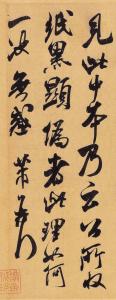 見此中本乃云公所收
紙黑顯偽者此理如何
一決無惑 芾頓首